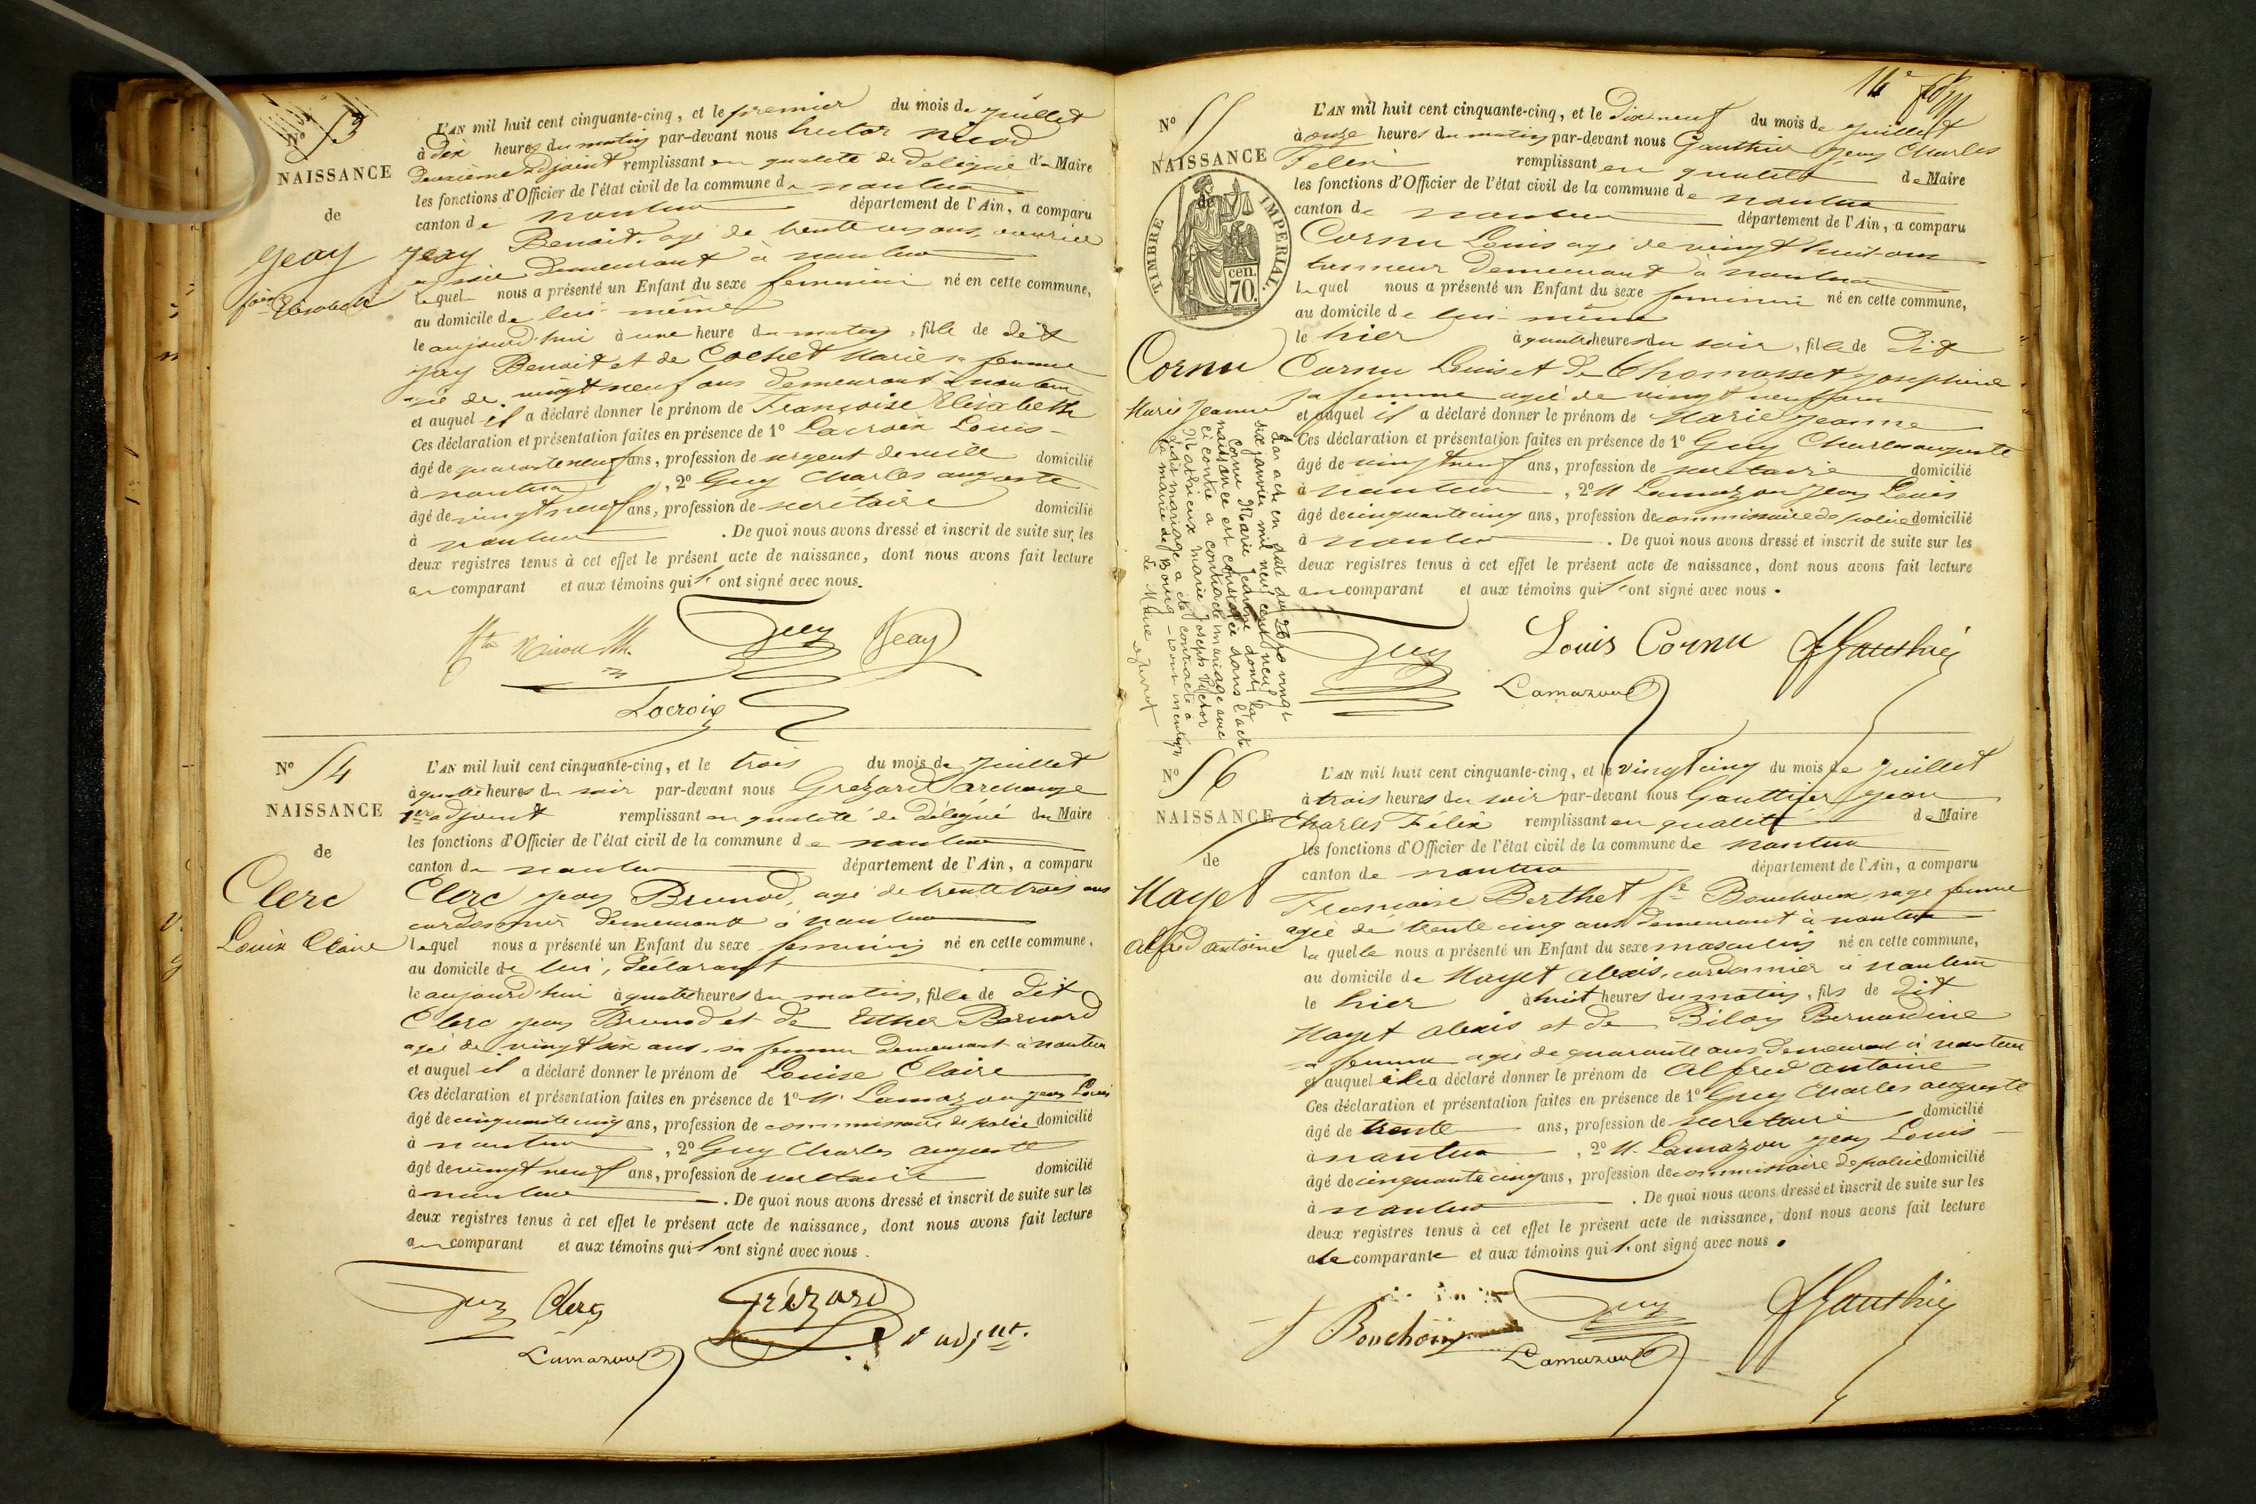 N° 53
NAISSANCE
de
Jeay
foise Elisabeth
L'AN mil huit cent cinquante-cinq, et le premier du mois de juillet
à dix heures du matin par-devant nous hector nicod
Deuxième adjoint remplissant en qualité de Délégué d Maire
les fonctions d'Officier de l'état civil de la commune de nantua
canton de nantua département de l'Ain, a comparu
Jeay Benoit, agé de trente ans, ouvrier
demeurant à nantua
lequel nous a présenté un Enfant du sexe feminin né en cette commune,
au domicile de lui-même
le aujourd'hui à une heure du matin, fille de dit
Jeay Benoit et de Cochet Marie sa femme
agée de vingt neuf ans demeurant à nantua
et auquel il a déclaré donner le prénom de Françoise Elisabeth
Ces déclaration et présentation faites en présence de 1° Lacroix Louis
âgé de quarante neuf ans, profession de sergent de ville domicilié
à nantua, 2° Guy Charles auguste
âgé de vingt neuf ans, profession de secrétaire domicilié
à nantua. De quoi nous avons dressé et inscrit de suite sur les
deux registres tenus à cet effet le présent acte de naissance, dont nous avons fait lecture
au comparant et aux témoins qui l'ont signé avec nous.
Guy Jeay
Lacroix
N° 54
NAISSANCE
de
Clerc
Louise Claire
L'AN mil huit cent cinquante-cinq, et le trois du mois de juillet
à quatre heures du soir par-devant nous Grézard archange
1er adjoint remplissant en qualité de Délégué du Maire
les fonctions d'Officier de l'état civil de la commune de nantua
canton de nantua département de l'Ain, a comparu
Clerc jean Brunod, agé de trente trois ans
cordonnier demeurant à nantua
lequel nous a présenté un Enfant du sexe feminin né en cette commune,
au domicile de lui, déclarant
le aujourd'hui à quatre heures du matin, fille de dit
Clerc jean Brunod et de Esther Bernard
agée de vingt six ans, sa femme demeurant à nantua
et auquel il a déclaré donner le prénom de Louise Claire
Ces déclaration et présentation faites en présence de 1° M. Lamazou jean Louis
âgé de cinquante cinq ans, profession de commissaire de police domicilié
à nantua, 2° Guy Charles auguste
âgé de vingt neuf ans, profession de secrétaire domicilié
à nantua. De quoi nous avons dressé et inscrit de suite sur les
deux registres tenus à cet effet le présent acte de naissance, dont nous avons fait lecture
au comparant et aux témoins qui l'ont signé avec nous.
Guy Clerc Grézard
Lamazou
14e
N° 55
NAISSANCE
de
TIMBRE IMPERIAL.
70 cen.
Cornu
Marie Jeanne
L'AN mil huit cent cinquante-cinq, et le Dix-neuf du mois de juillet
à onze heures du matin par-devant nous Gauthier Jean Charles
Felix remplissant en qualité de Maire
les fonctions d'Officier de l'état civil de la commune de nantua
canton de nantua département de l'Ain, a comparu
Cornu Louis agé de vingt huit ans
tanneur demeurant à nantua
lequel nous a présenté un Enfant du sexe feminin né en cette commune,
au domicile de lui-même
le hier à quatre heures du soir, fille de dit
Cornu Louis et de Thomasset Josephine
sa femme agée de vingt neuf ans
et auquel il a déclaré donner le prénom de Marie Jeanne
Ces déclaration et présentation faites en présence de 1° Guy Charles auguste
âgé de vingt neuf ans, profession de secrétaire domicilié
à nantua, 2° M Lamazou Jean Louis
âgé de cinquante cinq ans, profession de commissaire de police domicilié
à nantua. De quoi nous avons dressé et inscrit de suite sur les
deux registres tenus à cet effet le présent acte de naissance, dont nous avons fait lecture
au comparant et aux témoins qui l'ont signé avec nous.
Par acte en date du vingt
six janvier mil neuf cent neuf
Cornu Marie Jeanne dont la
naissance est constatée dans l'acte
ci contre a contracté mariage avec
Mathieux Marie Joseph Victor
Ledit mariage a été contracté à
la mairie de Bourg - Dont mention
Le Maire
Guy Louis Cornu Gauthier
Lamazou
N° 56
NAISSANCE
de
Mayet
Alfred antoine
L'AN mil huit cent cinquante-cinq, et le vingt cinq du mois de juillet
à trois heures du soir par-devant nous Gautthier Jean
Charles Félix remplissant en qualité de Maire
les fonctions d'Officier de l'état civil de la commune de nantua
canton de nantua département de l'Ain, a comparu
Françoise Berthet fe Bouchoux sage femme
agée de trente cinq ans demeurant à nantua
laquelle nous a présenté un Enfant du sexe masculin né en cette commune,
au domicile de Mayet alexis, cordonnier à nantua
le hier à huit heures du matin, fils de dit
Mayet alexis et de Biloy Bernardine
sa femme agée de quarante ans demeurant à nantua
et auquel elle a déclaré donner le prénom de Alfred antoine
Ces déclaration et présentation faites en présence de 1° Guy Charles auguste
âgé de trente ans, profession de secrétaire domicilié
à nantua, 2° M. Lamazou jean Louis
âgé de cinquante cinq ans, profession de commissaire de police domicilié
à nantua. De quoi nous avons dressé et inscrit de suite sur les
deux registres tenus à cet effet le présent acte de naissance, dont nous avons fait lecture
a la comparante et aux témoins qui l'ont signé avec nous.
f Bouchoux Guy Gauthier
Lamazou